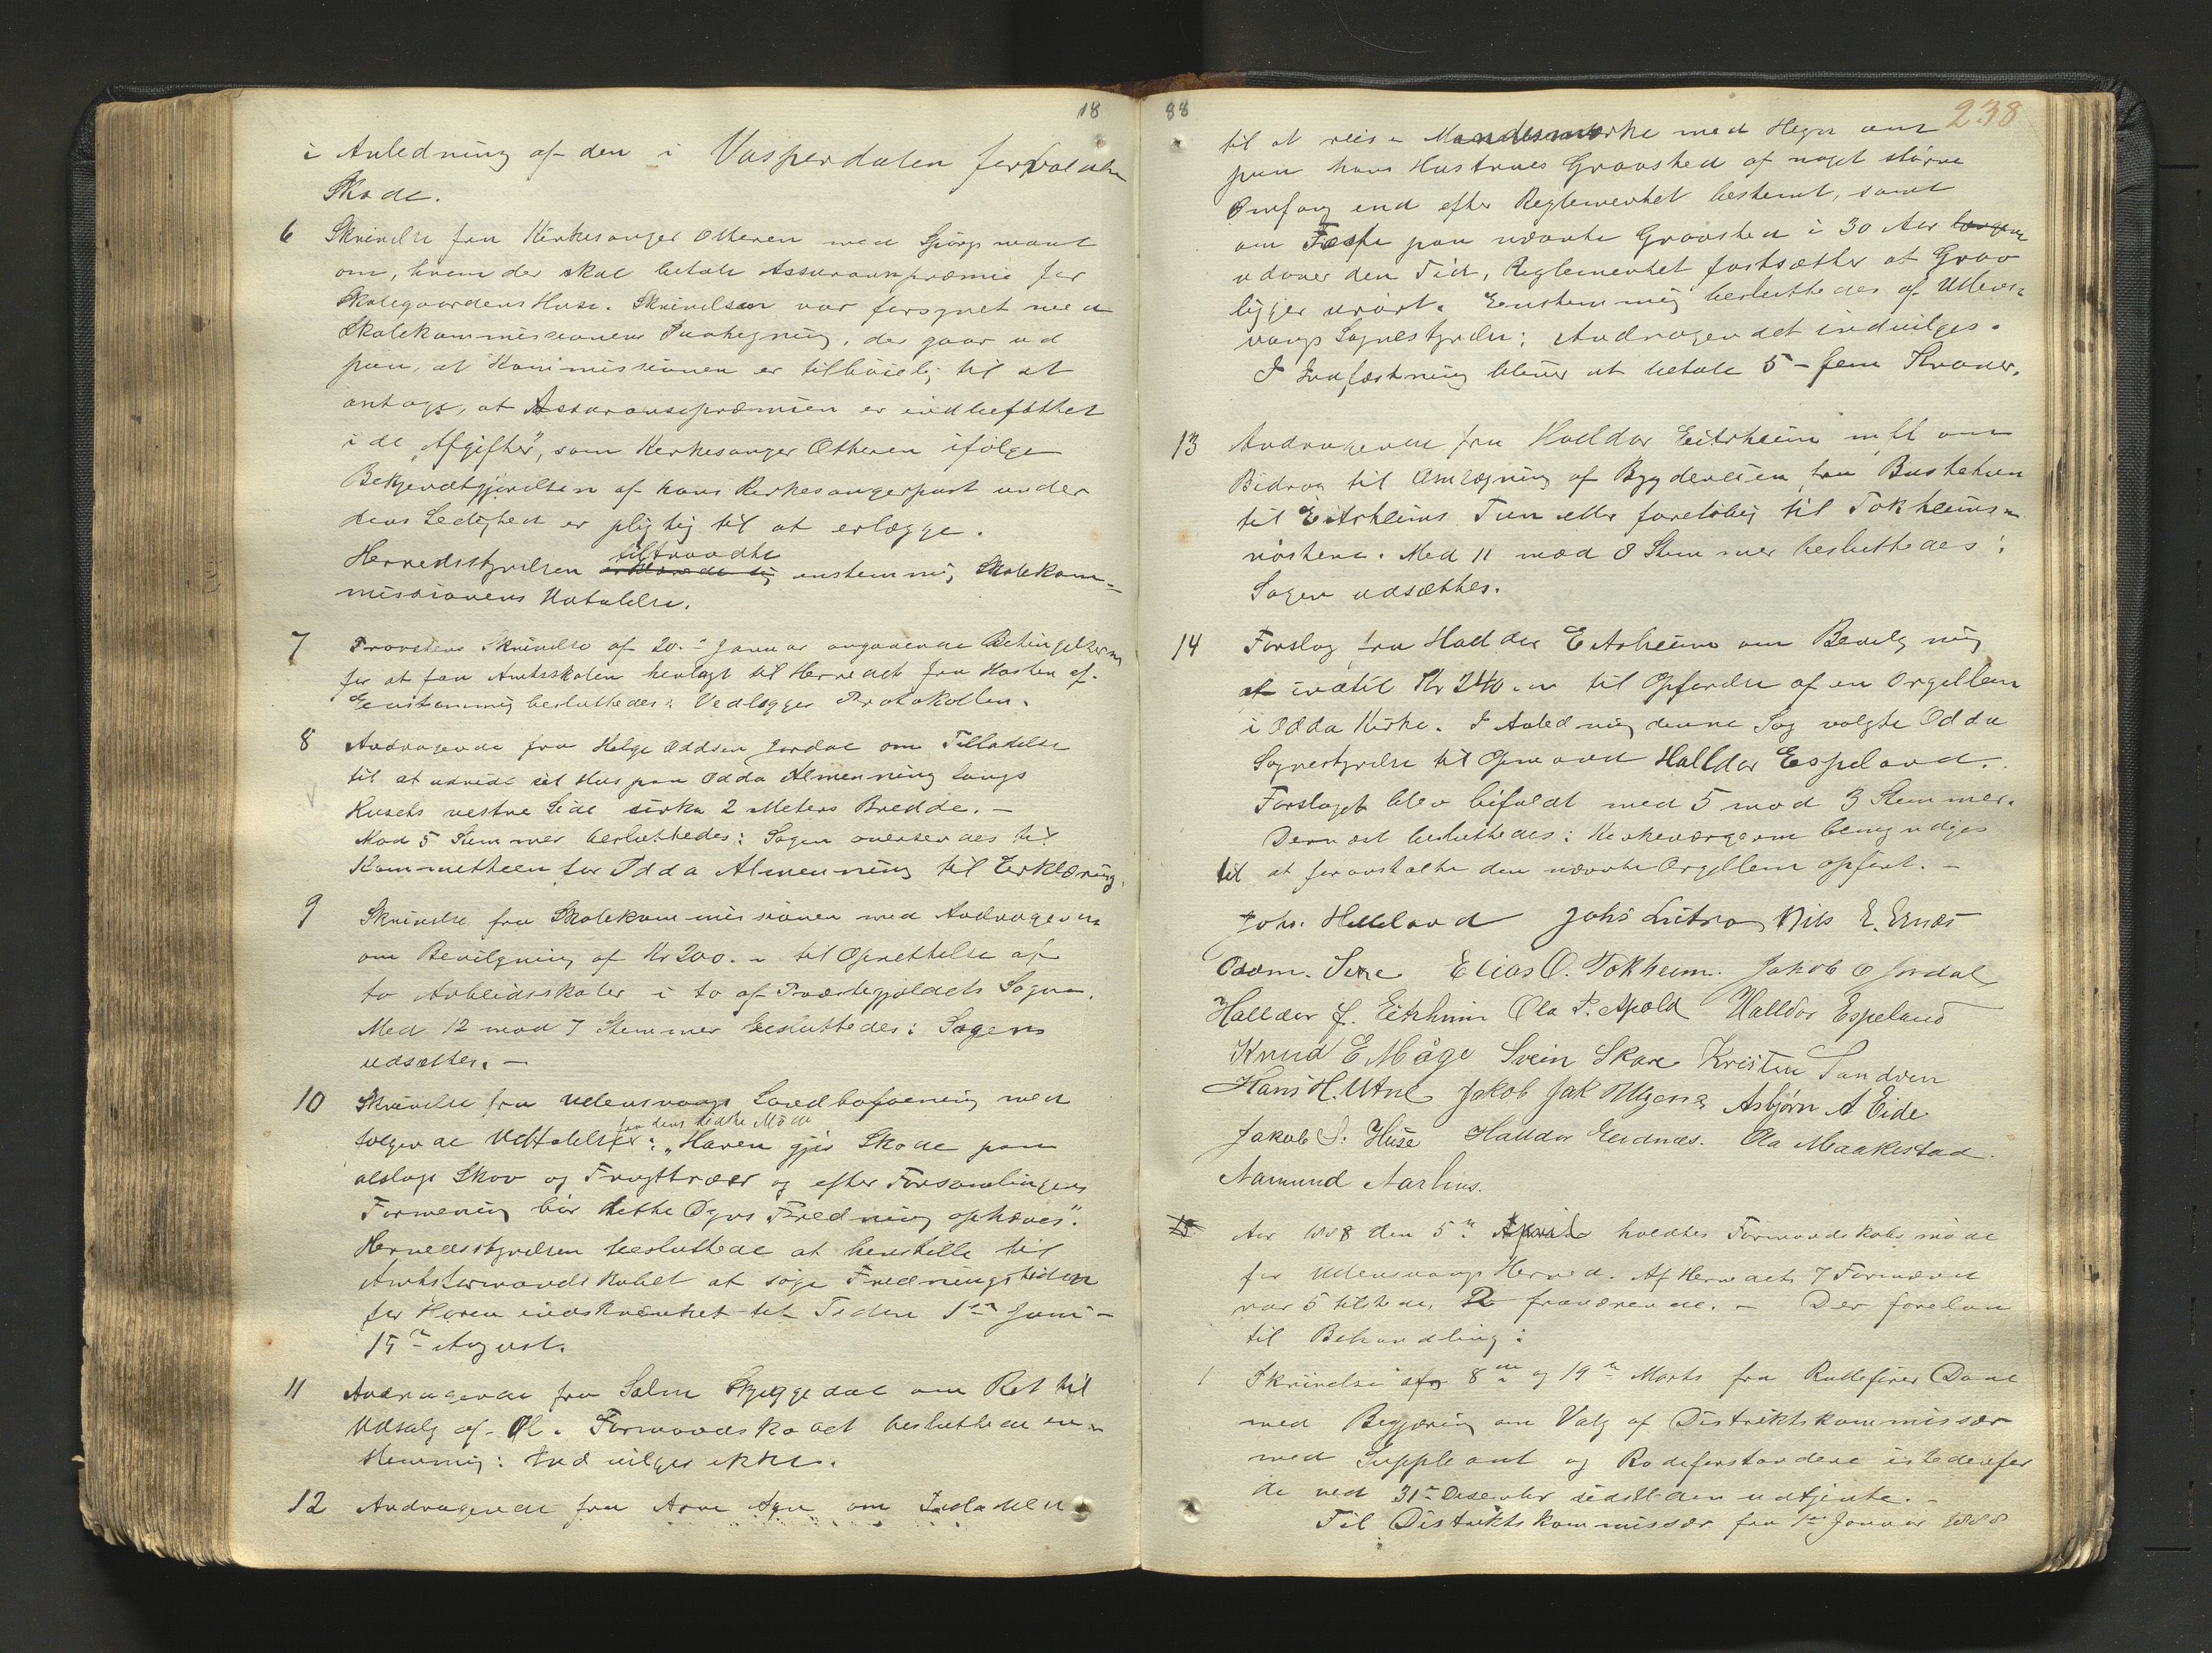 18
i Anledning af den i Vasperdalen forvoldte
Skade.
6 Skrivelse fra Kirkesanger Ottesen med Spörgsmaal
om, hvem der skal betale Assurancepræmie for
Skolegaardens Huse. Skrivelsen var forsynet med
Skolekommissionens Paategning, der gaar ud
paa, at Kommissionen er tilböielig til at
antage, at Assurancepræmien er indbefattet
i de „Afgifter", som Kirkesanger Ottesen ifölge
Bekjendtgjörelsen af hans Kirkesangerpost under
dens Ledighed er pligtig til at erlægge.
tiltraadte
Herredsstyrelsen erklærede sig enstemmig Skolekom-
missionens Udtalelse.
7 Provstens Skrivelse af 20. Januar angaaende Betingelserne
for at faa Amtsskolen henlagt til Herredet fra Hösten af.
Enstemmig besluttedes: Vedlægges Protokollen.
8 Andragende fra Helge Oddsen Jordal om Tilladelse
til at udvide sit Hus paa Odda Almenning langs
Husets vestre Side cirka 2 Meters Bredde. –
Mod 5 Stemmer besluttedes: Sagen oversendes til
Kommitteen for Odda Almenning til Erklæring.
9 Skrivelse fra Skolekommissionen med Andragende
om Bevilgning af Kr 200. – til Oprettelse af
to Arbeidsskoler i to af Præstegjeldets Sogne.
Med 12 mod 7 Stemmer besluttedes: Sagen
udsættes. –
10 Skrivelse fra Ullensvangs Landboforening med
fra dens sidste Möde
fölgende Udtalelse: „Haren gjör Skade paa
alslags Skov og Frugttræer og efter Forsamlingens
Formening bör dette Dyrs Fredning ophæves".
Herredsstyrelsen besluttede at henstille til
Amtsformandskabet at söge Fredningstiden
for Haren indskrænket til Tiden 1ste Juni –
15de August.
11 Andragende fra Salm Skjeggedal om Ret til
Udsalg af Öl. Formandskabet besluttede en-
stemmig: Indvilges ikke.
12 Andragende fra Arne Aga om Tilladelse
88
238
til at reise Mindesmærke med Hegn om
paa hans Hustrues Gravsted af noget större
Omfang end efter Reglementet bestemt, samt
om Fæste paa nævnte Gravsted i 30 Aar længere
udover den Tid, Reglementet fastsætter at Grav
ligger urört. Enstemmig besluttedes af Ullens-
vangs Sognestyrelse: Andragendet indvilges.
I Indfæstning bliver at betale 5 – fem Kroner.
13 Andragende fra Halldor Eitrheim m.fl. om
Bidrag til Omlægning af Bygdeveien fra Busteteen
til Eitrheims Tun eller foreløbig til Tokheims-
nöstene. Med 11 mod 8 Stemmer besluttedes:
Sagen udsættes.
14 Forslag fra Halldor Eitrheim om Bevilgning
af indtil Kr 240. – til Opförelse af en Orgellem
i Odda Kirke. I Anledning denne Sag valgte Odda
Sognestyrelse til Formand Halldor Espeland.
Forslaget blev bifaldt med 5 mod 3 Stemmer.
Dernæst besluttedes: Kirkeværgerne bemyndiges
til at foranstalte den nævnte Orgellem opfört. –
Johs. Helleland Johs Lutro Nils E. Ernes
Oddm. Sexe Elias O. Tokheim. Jakob O Jordal
Halldor J. Eitrheim Ola P. Apold Halldor Espeland
Knud E Måge Svein Skare Kristen Sandven
Hans H. Utne Jakob Jak Asbjørn A Eide
Jakob S. Huse Halldor Eidnæs. Ola Maakestad.
Aamund Aarhus.
15 Aar 1888 den 5te April holdtes Formandskabsmöde
for Ullensvangs Herred. Af Herredets 7 Formænd
var 5 tilstede, 2 fraværende. – Der forelaa
til Behandling:
1 Skrivelse af 8de og 19de Marts fra Rullefører Daae
med Begjæring om Valg af Distriktskommissær
med Suppleant og Rodeforstandere istedenfor
de ved 31te Desember sidstleden udtjente. –
Til Distriktskommissær fra 1ste Januar 1888